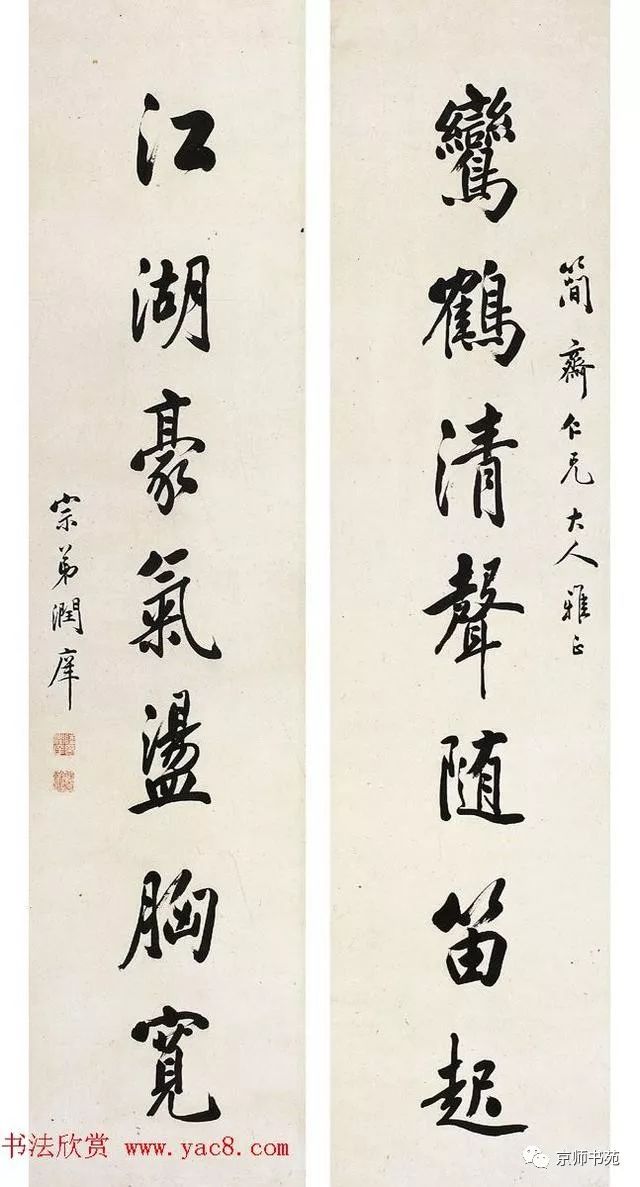 簡齋仁兄大人雅正
鸞鶴清聲随笛起
江湖豪氣盪胸寬
宗弟潤庠
书法欣赏 www.yac8.com
京师书苑